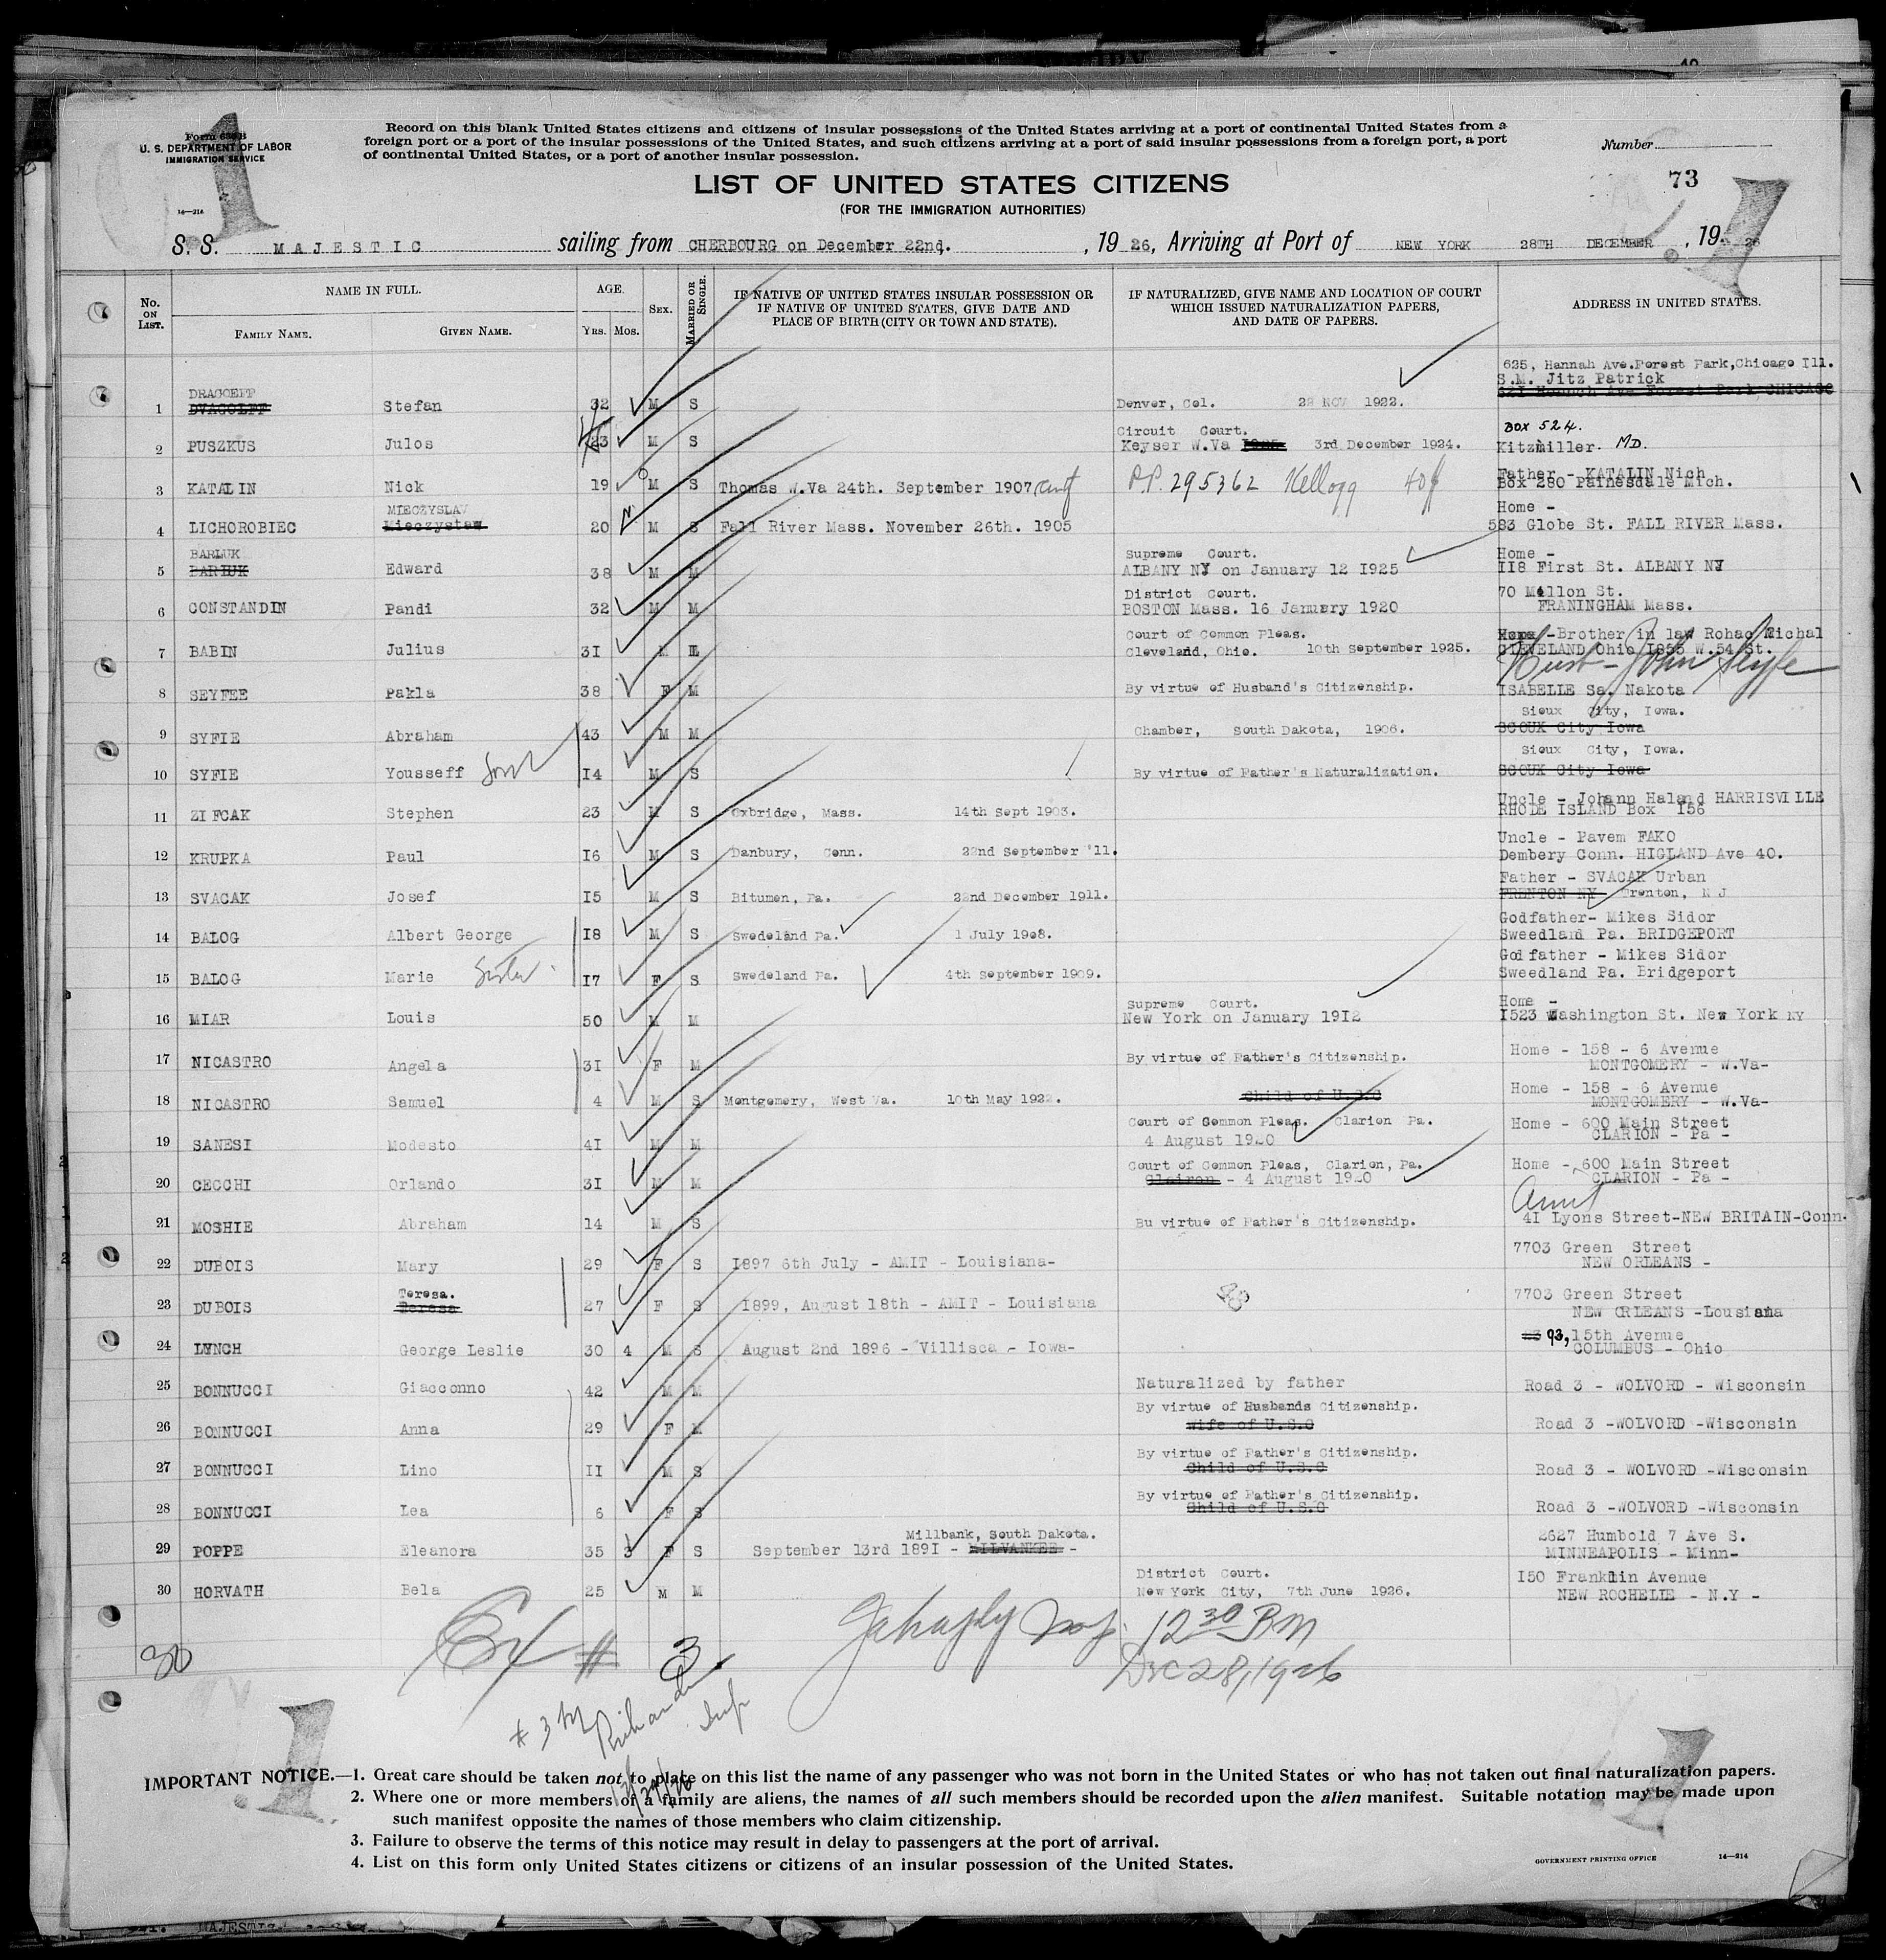 Form 630 B
U. S. DEPARTMENT OF LABOR
IMMIGRATION SERVICE
14—214
Record on this blank United States citizens and citizens of insular possessions of the United States arriving at a port of continental United States from a
foreign port or a port of the insular possessions of the United States, and such citizens arriving at a port of said insular possessions from a foreign port, a port
of continental United States, or a port of another insular possession.
Number
73
LIST OF UNITED STATES CITIZENS
(FOR THE IMMIGRATION AUTHORITIES)
S. S. MAJESTIC sailing from CHERBOURG on December 22nd. , 19 26, Arriving at Port of NEW YORK 28TH DECEMBER , 19 26
No. ON LIST. NAME IN FULL. FAMILY NAME. GIVEN NAME. AGE. YRS. MOS. SEX. MARRIED OR SINGLE. IF NATIVE OF UNITED STATES INSULAR POSSESSION OR IF NATIVE OF UNITED STATES, GIVE DATE AND PLACE OF BIRTH (CITY OR TOWN AND STATE). IF NATURALIZED, GIVE NAME AND LOCATION OF COURT WHICH ISSUED NATURALIZATION PAPERS, AND DATE OF PAPERS. ADDRESS IN UNITED STATES.
625, Hannah Ave.Forest Park,Chicago Ill.
S.M. Jitz Patrick
DRAGOEFF
1 DVAGOLFF Stefan 32 M S Denver, Col. 28 NOV 1922. 621 Hannah Ave Forest Park CHICAGO
Circuit Court. BOX 524.
2 PUSZKUS Julos 23 M S Keyser W.Va 3rd December 1924. Kitzmiller. MD.
Father - KATALIN Nich
3 KATALIN Nick 19 M S Thomas W.Va 24th. September 1907 P.P. 295362 Kellogg Box 280 Painesdale Mich.
MIECZYSLAV Home -
4 LICHOROBIEC Mieczystaw 20 M S Fall River Mass. November 26th. 1905 583 Globe St. FALL RIVER Mass.
BARLUK Supreme Court. Home -
5 BARIUK Edward 38 M M ALBANY NY on January 12 1925 118 First St. ALBANY NY
District Court. 70 Millon St.
6 CONSTANDIN Pandi 32 M M BOSTON Mass. 16 January 1920 FRANINGHAM Mass.
Court of Common Pleas. Home -Brother in law Rohac Michal
7 BABIN Julius 31 M Cleveland, Ohio. 10th September 1925. CLEVELAND Ohio 1855 W.54 St.
Husb - John Seyfe
8 SEYFEE Pakla 38 F M By virtue of Husband's Citizenship. ISABELLE Sa. Nakota
Sioux City, Iowa.
9 SYFIE Abraham 43 M M Chamber, South Dakota, 1906. SCOUX City Iowa
Sioux City, Iowa.
10 SYFIE Yousseff Son 14 M S By virtue of Father's Naturalization. SCOUX City Iowa
Uncle - Johann Haland HARRISVILLE
11 ZIFCAK Stephen 23 M S Oxbridge, Mass. 14th Sept 1903. RHODE ISLAND Box 156
Uncle - Pavem FAKO
12 KRUPKA Paul 16 M S Danbury, Conn. 22nd September '11. Dembery Conn. HIGLAND Ave 40.
Father - SVACAK Urban
13 SVACAK Josef 15 M S Bitumen, Pa. 22nd December 1911. TRENTON NY Trenton, N J
Godfather- Mikes Sidor
14 BALOG Albert George 18 M S Swedeland Pa. 1 July 1908. Sweedland Pa. BRIDGEPORT
Godfather - Mikes Sidor
15 BALOG Marie Sister. 17 F S Swedeland Pa. 4th September 1909. Sweedland Pa. Bridgeport
Supreme Court. Home -
16 MIAR Louis 50 M M New York on January 1912 1523 Washington St. New York NY
17 NICASTRO Angela 31 F M By virtue of Father's Citizenship. Home - 158 - 6 Avenue
MONTGOMERY - W.Va-
18 NICASTRO Samuel 4 M S Montgomery, West Va. 10th May 1922. Child of U.S.C Home - 158 - 6 Avenue
MONTGOMERY - W.Va-
Court of Common Pleas. Clarion Pa. Home - 600 Main Street
19 SANESI Modesto 41 M M 4 August 1920 CLARION - Pa -
Court of Common Pleas, Clarion, Pa. Home - 600 Main Street
20 CECCHI Orlando 31 M M Clairon - 4 August 1920 CLARION - Pa -
Aunt
21 MOSHIE Abraham 14 M S Bu virtue of Father's Citizenship. 41 Lyons Street-NEW BRITAIN-Conn.
7703 Green Street
22 DUBOIS Mary 29 F S 1897 6th July - AMIT - Louisiana- NEW ORLEANS -
Teresa. 7703 Green Street
23 DUBOIS Teresa 27 F S 1899, August 18th - AMIT - Louisiana NEW ORLEANS -Lousiana
93, 15th Avenue
24 LYNCH George Leslie 30 4 M S August 2nd 1896 - Villisca - Iowa- COLUMBUS - Ohio
25 BONNUCCI Giacconno 42 M M Naturalized by father Road 3 - WOLVORD - Wisconsin
By virtue of Husbands Citizenship.
26 BONNUCCI Anna 29 F M Wife of U.S.C Road 3 -WOLVORD -Wisconsin
By virtue of Father's Citizenship.
27 BONNUCCI Lino 11 M S Child of U.S.C Road 3 - WOLVORD -Wisconsin
By virtue of Father's Citizenship.
28 BONNUCCI Lea 6 F S Child of U.S.C Road 3 -WOLVORD -Wisconsin
Millbank, South Dakota. 2627 Humbold 7 Ave S.
29 POPPE Eleanora 35 3 F S September 13rd 1891 - MILVANKEE - MINNEAPOLIS - Minn-
District Court. 150 Franklin Avenue
30 HORVATH Bela 25 M M New York City, 7th June 1926. NEW ROCHELLE - N.Y -
12 30 PM
30 3 Dec 28, 1926
IMPORTANT NOTICE.—1. Great care should be taken not to place on this list the name of any passenger who was not born in the United States or who has not taken out final naturalization papers.
2. Where one or more members of a family are aliens, the names of all such members should be recorded upon the alien manifest. Suitable notation may be made upon
such manifest opposite the names of those members who claim citizenship.
3. Failure to observe the terms of this notice may result in delay to passengers at the port of arrival.
4. List on this form only United States citizens or citizens of an insular possession of the United States.
GOVERNMENT PRINTING OFFICE 14—214